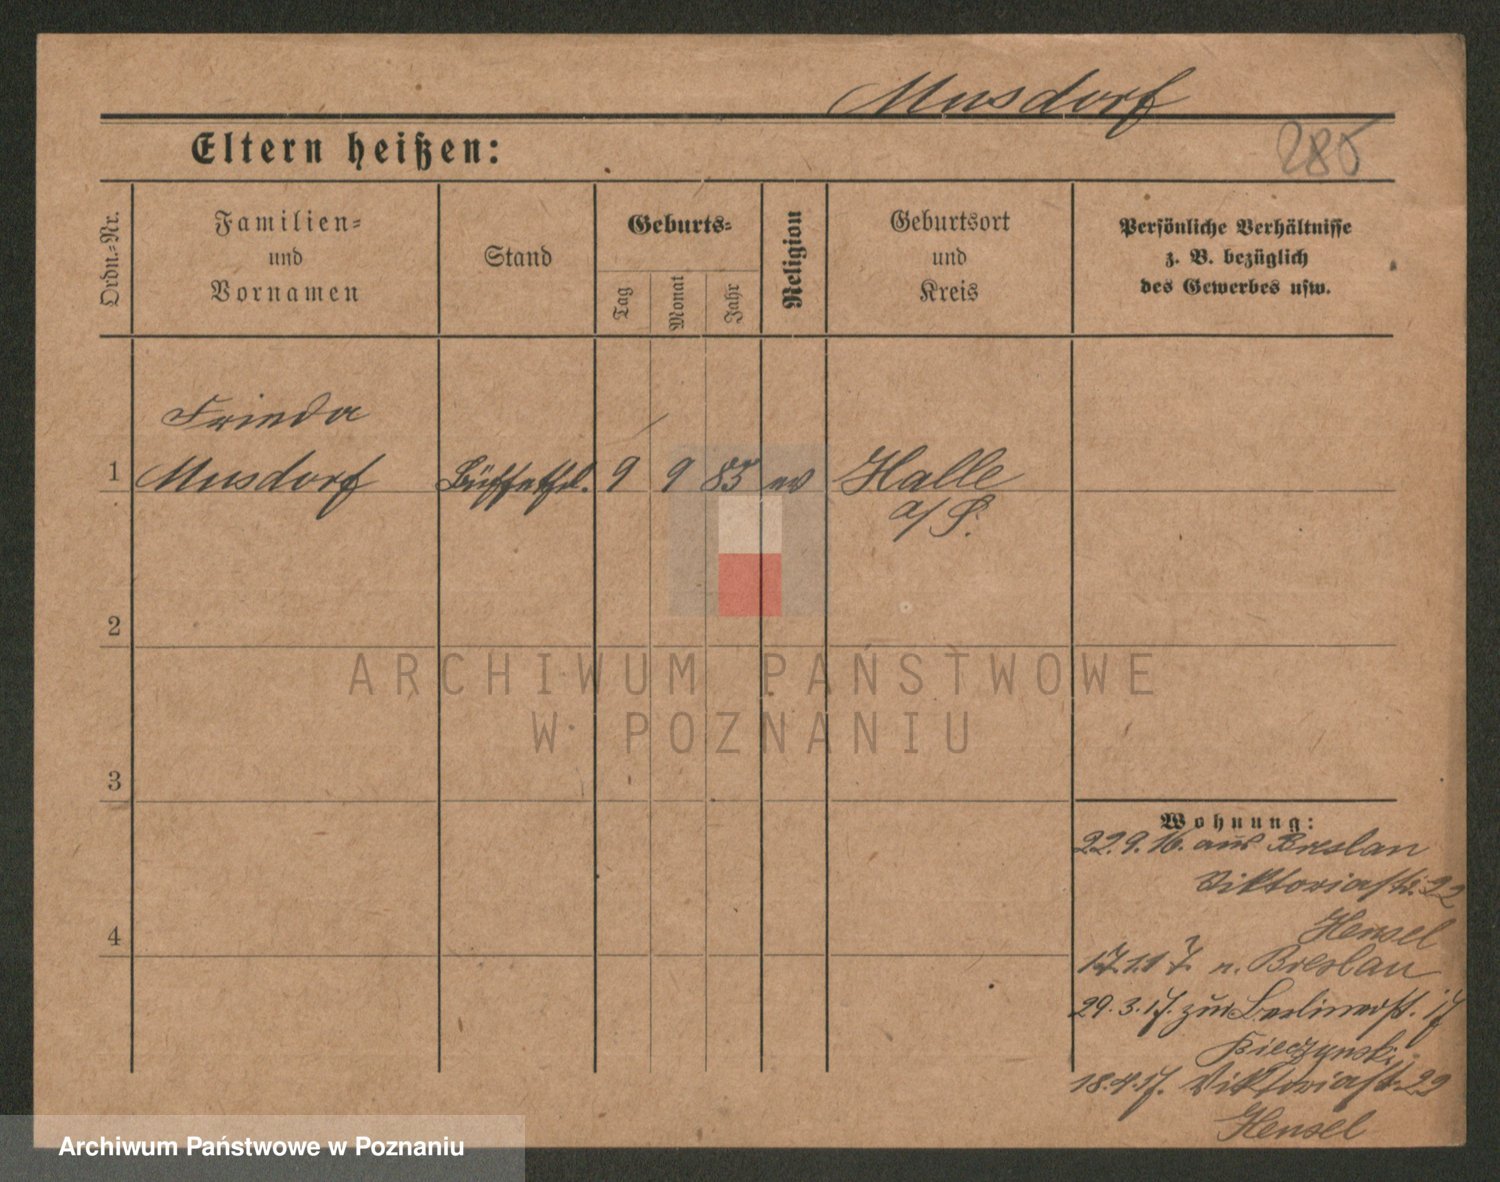 Musdorf
Eltern heißen:
285
Ordn.-Nr.
Familien-
und
Vornamen
Stand
Geburts-
Tag
Monat
Jahr
Religion
Geburtsort
und
Kreis
Persönliche Verhältnisse
z. B. bezüglich
des Gewerbes usw.
Frieda
1 Musdorf Büffetfrl. 9 9 85 ev Halle
a/S.
2
ARCHIWUM PAŃSTWOWE
W POZNANIU
3
Wohnung:
22.9.16. aus Breslau
Viktoriastr. 22
Hensel
4
17.1.17. n. Breslau
29.3.17. zur Berlinerst. 17
18.4.17. Viktoriastr. 22
Hensel
Archiwum Państwowe w Poznaniu